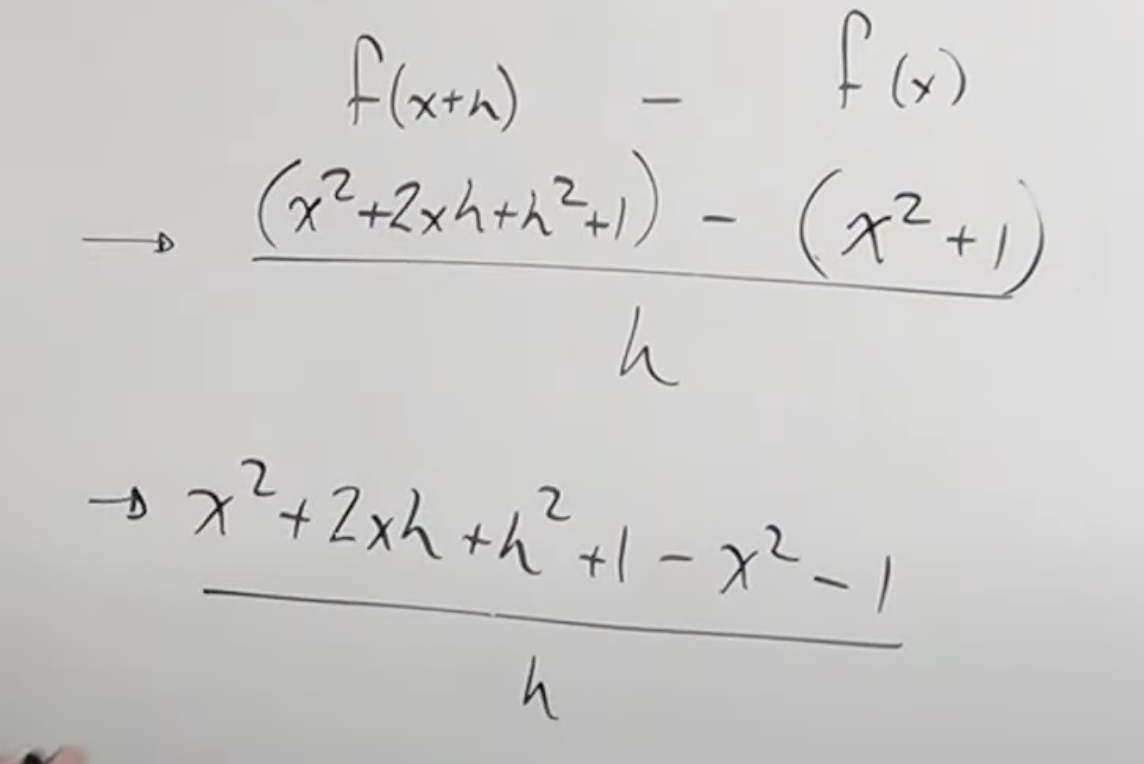 f(x+h) - f(x)
→ (x²+2xh+h²+1) - (x²+1)
h
→ x²+2xh+h²+1-x²-1
h